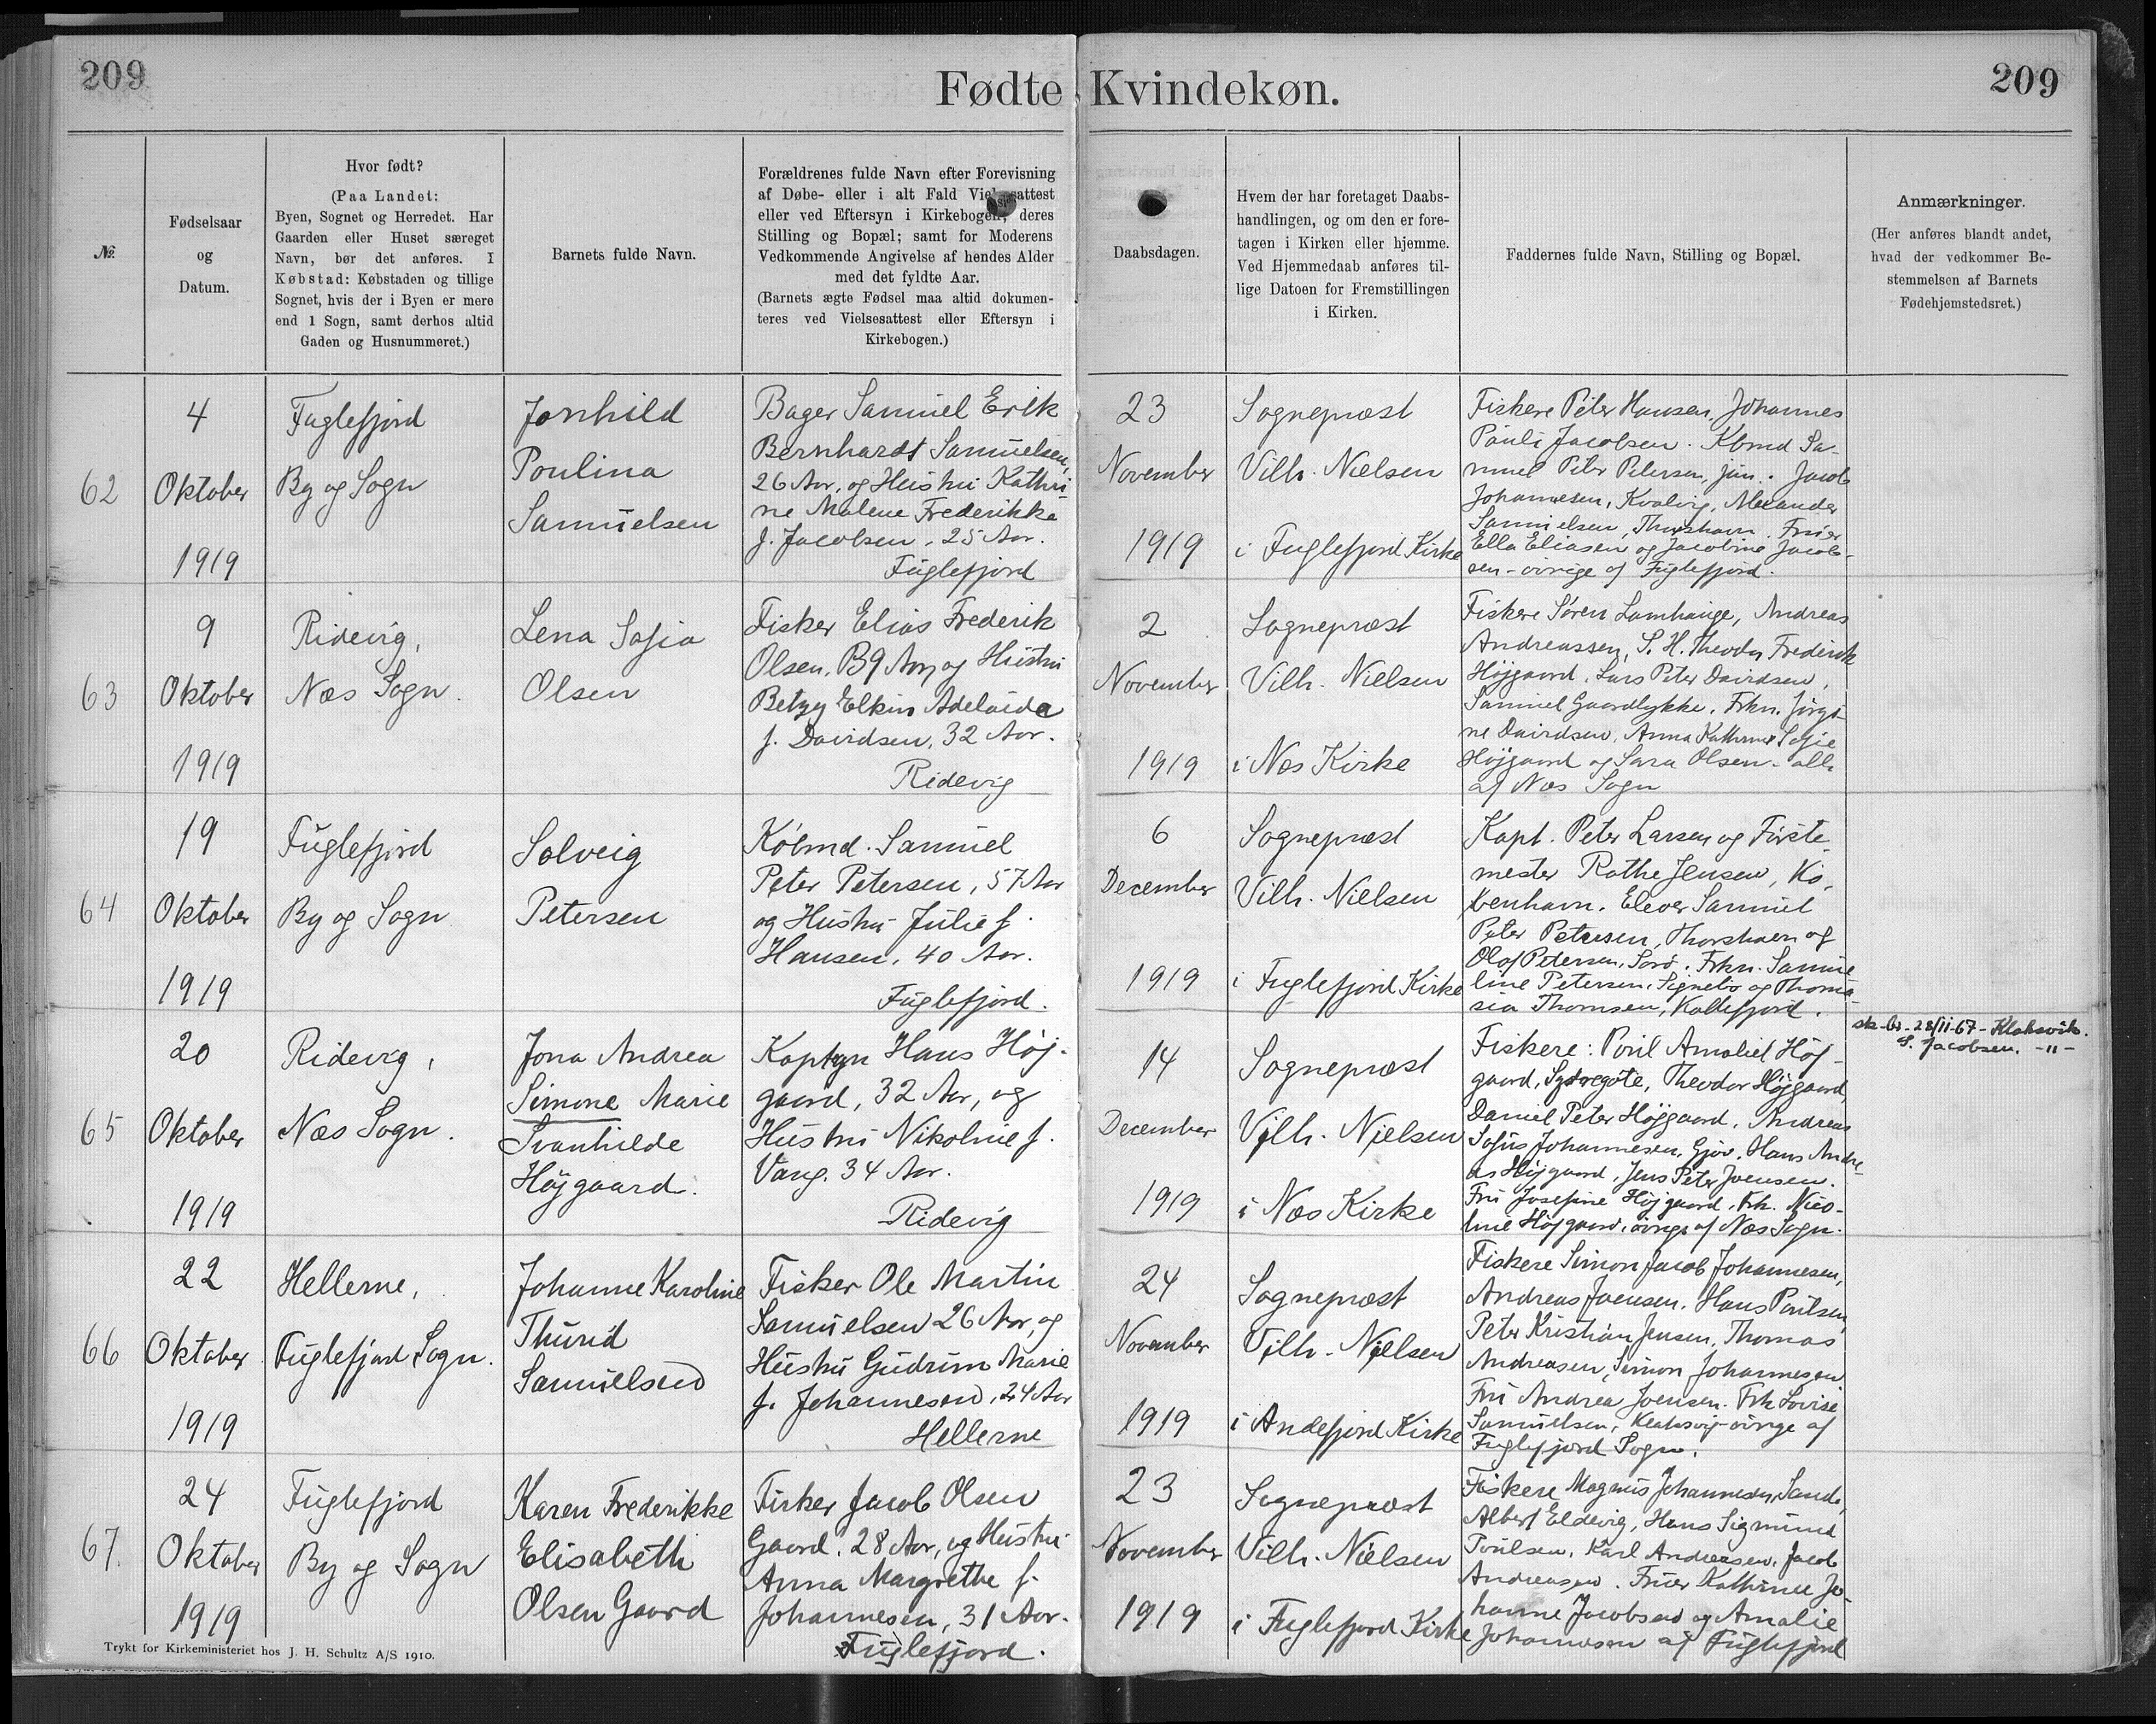 209
Fødte Kvindekøn.
209
№.
Fødselsaar
og
Datum.
Hvor født?
(Paa Landet:
Byen, Sognet og Herredet. Har
Gaarden eller Huset særeget
Navn, bør det anføres. I
Købstad: Købstaden og tillige
Sognet, hvis der i Byen er mere
end 1 Sogn, samt derhos altid
Gaden og Husnummeret.)
Barnets fulde Navn.
Forældrenes fulde Navn efter Forevisning
af Døbe- eller i alt Fald Vielsesattest
eller ved Eftersyn i Kirkebogen, deres
Stilling og Bopæl; samt for Moderens
Vedkommende Angivelse af hendes Alder
med det fyldte Aar.
(Barnets ægte Fødsel maa altid dokumen-
teres ved Vielsesattest eller Eftersyn i
Kirkebogen.)
Daabsdagen.
Hvem der har foretaget Daabs-
handlingen, og om den er fore-
tagen i Kirken eller hjemme.
Ved Hjemmedaab anføres til-
lige Datoen for Fremstillingen
i Kirken.
Faddernes fulde Navn, Stilling og Bopæl.
Anmærkninger.
(Her anføres blandt andet,
hvad der vedkommer Be-
stemmelsen af Barnets
Fødehjemstedsret.)
62
4
Oktober
1919
Fuglefjord
By og Sogn
Jonhild
Poulina
Samuelsen
Bager Samuel Erik
Bernhardt Samuelsen,
26 Aar, og Hustru Kathri
ne Malene Frederikke
f. Jacobsen, 25 Aar.
Fuglefjord
23
November
1919
Sognepræst
Vilh. Nielsen
i Fuglefjord Kirke
Fiskere Peter Hansen, Johannes
Pauli Jacobsen. Kbmd Sa-
muel Peter Petersen, jun. Jacob
Johannesen, Kvalvig, Alexander
Samuelsen, Thorshavn. Fruer
Ella Eliasen og Jacobine Jacob-
sen - øvrige af Fuglefjord.
63
9
Oktober
1919
Ridevig,
Næs Sogn.
Lena Sofia
Olsen
Fisker Elias Frederik
Olsen, 39 Aar, og Hustru
Betzy Elkin Adelaide
f. Davidsen, 32 Aar.
Ridevig
2
November
1919
Sognepræst
Vilh. Nielsen
i Næs Kirke
Fiskere Søren Lamhauge, Andreas
Andreassen, S. H. Theodor Frederik
Højgaard, Lars Peter Davidsen,
Samuel Gaardlykke. Frkn. Jørgi-
ne Davidsen, Anna Kathrine Sofie
Højgaard og Sara Olsen - alle
af Næs Sogn
64
19
Oktober
1919
Fuglefjord
By og Sogn
Solveig
Petersen
Købmd. Samuel
Peter Petersen, 57 Aar
og Hustru Julie f.
Hansen, 40 Aar.
Fuglefjord.
6
December
1919
Sognepræst
Vilh. Nielsen
i Fuglefjord Kirke
Kapt. Peter Larsen og Første-
mester Rathe Jensen, Kø-
benhavn. Elever Samuel
Peter Petersen, Thorshavn og
Olof Petersen, Sorø. Frkn. Samue
line Petersen, Signebø og Thoma-
sia Thomsen, Kollefjord.
65
20
Oktober
1919
Ridevig,
Næs Sogn.
Jona Andrea
Simone Marie
Svanhilde
Højgaard.
Kaptajn Hans Høj-
gaard, 32 Aar, og
Hustru Nikoline f.
Vang. 34 Aar.
Ridevig
14
December
1919
Sognepræst
Vilh. Nielsen
i Næs Kirke
Fiskere: Poul Amaliel Høj-
gaard, Sydregøte, Theodor Højgaard,
Daniel Peter Højgaard, Andreas
Sofus Johannesen, Gjov, Hans Andre-
as Højgaard, Jens Peter Joensen.
Fru Josefine Højgaard, Frk. Nico-
line Højgaard, øvrige af Næs Sogn.
sk-br - 28/11-67 - Klaksvik.
S. Jacobsen. -"-
66
22
Oktober
1919
Hellerne,
Fuglefjord Sogn.
Johanne Karoline
Thurid
Samuelsen
Fisker Ole Martin
Samuelsen 26 Aar, og
Hustru Gudrun Marie
f. Johannesen, 24 Aar
Hellerne
24
November
1919
Sognepræst
Vilh. Nielsen
i Andefjord Kirke
Fiskere Simon Jacob Johannesen,
Andreas Joensen. Hans Poulsen,
Peter Kristian Jensen, Thomas
Andreasen, Simon Johannesen
Fru Andrea Joensen. Frk Lovise
Samuelsen, Klaksvig - øvrige af
Fuglefjord Sogn.
67.
24
Oktober
1919
Fuglefjord
By og Sogn
Karen Frederikke
Elisabeth
Olsen Gaard
Fisker Jacob Olsen
Gaard. 28 Aar, og Hustru
Anna Margrethe f.
Johannesen, 31 Aar.
Fuglefjord.
23
November
1919
Sognepræst
Vilh. Nielsen
i Fuglefjord Kirke
Fiskere Magnus Johannesen, Sand,
Albert Eldevig, Hans Sigmund
Poulsen, Karl Andreasen, Jacob
Andreasen. Fruer Kathrine Jo-
hanne Jacobsen og Amalie
Johannesen af Fuglefjord
Trykt for Kirkeministeriet hos J. H. Schultz A/S 1910.